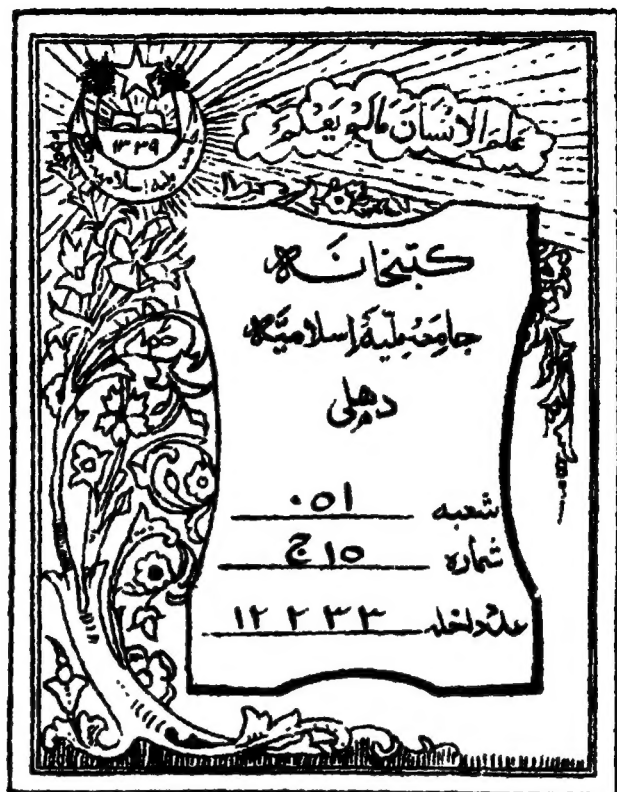 عَلَّمَ الْاِنْسَانَ مَالَمْ يَعْلَمْ
١٣٣٩
جامعہ ملیہ اسلامیہ
کتبخانہ
جامعہ ملّیہ اسلامیہ
دھلی
شعبہ ٠٥١
شمارہ ١٥ ج
عدد داخلہ ١٢٢٣٣